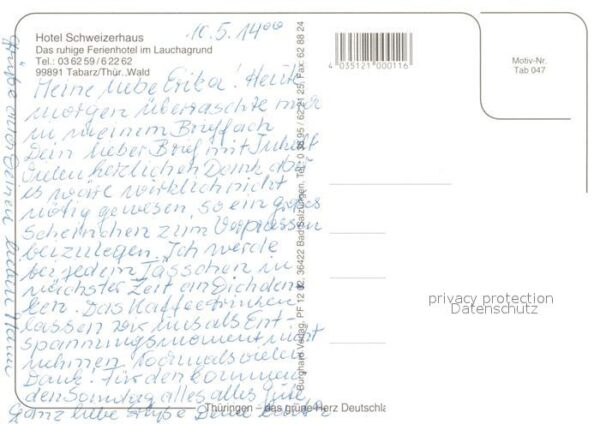 10.5.1400
Hotel Schweizerhaus
Das ruhige Ferienhotel im Lauchagrund
Tel.: 03 62 59 / 6 22 62
99891 Tabarz/Thür. Wald
Meine liebe Erika! Heute
morgen überraschte mich
in meinem Brieffach
Dein lieber Brief mit Inhalt
Vielen herzlichen Dank, aber
es wäre wirklich nicht
nötig gewesen, so ein großes
Scheinchen zum
beizulegen. Ich werde
bei jedem Tässchen in
nächster Zeit an Dich den-
ken. Das Kaffeetrinken
lassen wir uns als Ent-
spannungsmoment nicht
nehmen. Nochmals vielen
Dank. Für den kommen-
den Sonntag alles alles Gute
Ganz liebe Grüße Deine
Grüße auch Deinen lieben
Burghard Verlag, PF 12 02, 36422 Bad Salzungen, Tel. 0 36 95 / 62 21 25, Fax: 62 88 24
4 035121 000116
Motiv-Nr.
Tab 047
privacy protection
Datenschutz
Thüringen – das grüne Herz Deutschla